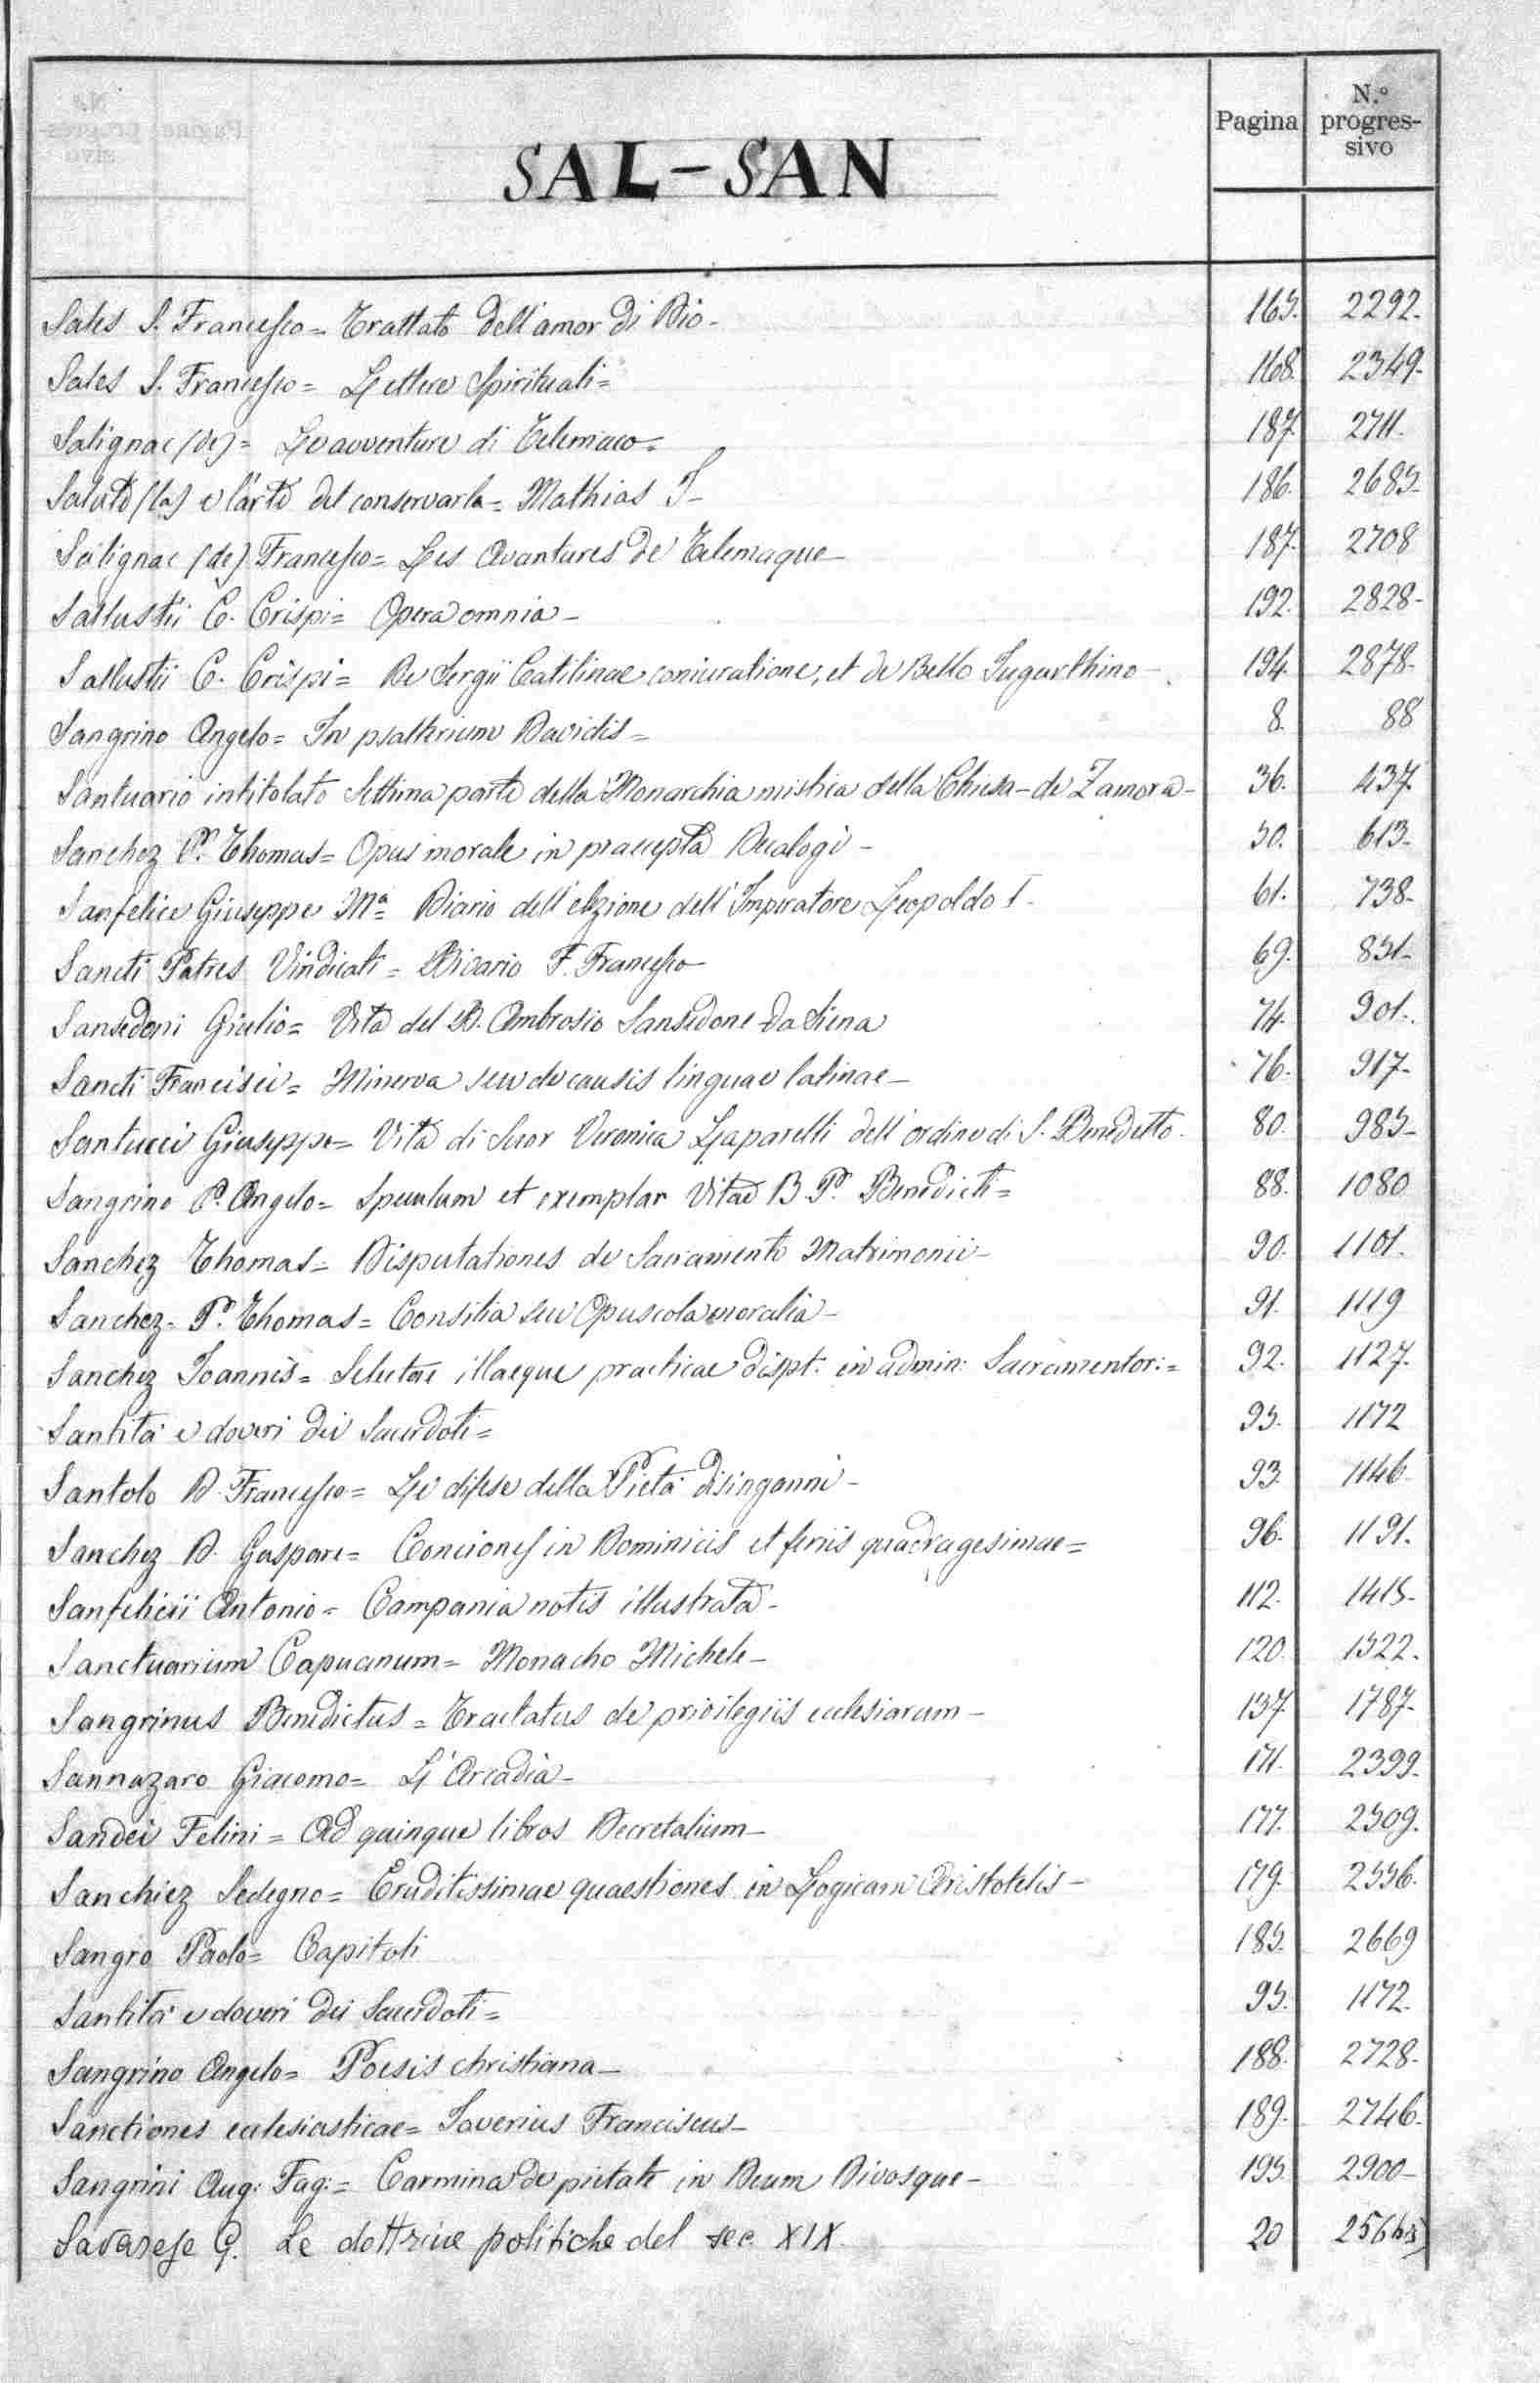 Pagina N.º progres-sivo
SAL-SAN
Sales S. Francesco = Trattato dell'amor di Dio - 165. 2292.
Sales S. Francesco = Lettere Spirituali = 168. 2349.
Salignac (de) = Le avventure di Telemaco = 187. 2711.
Salute (la) e l'arte del conservarla = Mathias J - 186. 2685-
Salignac (de) Francesco = Les Avantures de Telemaque - 187. 2708
Sallustii C. Crispi = Opera omnia - 192. 2828-
Sallustii C. Crispi = De Sergii Catilinae coniuratione, et de Bello Jugurthino - 194. 2878-
Sangrino Angelo = In psalterium Davidis = 8. 88
Santuario intitolato Settima parte della Monarchia mistica della Chiesa - de Zamora - 36. 437.
Sanchez P. Thomas = Opus morale in praecepta Decalogi - 50. 613-
Sanfelice Giuseppe Mª Diario dell'elezione dell'Imperatore Leopoldo I - 61. 738-
Sancti Patres Vindicati = Bivario F. Francesco - 69. 831-
Sansedoni Giulio = Vita del B. Ambrosio Sansedone da Siena 74. 901.
Sancti Francisci = Minerva seu de causis linguae latinae - 76. 917-
Santucci Giuseppe = Vita di Suor Veronica Laparelli dell'ordine di S. Benedetto. 80. 985-
Sangrino P. Angelo = Speculum et exemplar Vitae B. P. Benedicti = 88. 1080
Sanchez Thomas = Disputationes de Sacramento Matrimonii - 90. 1101.
Sanchez - P. Thomas = Consilia seu Opuscola moralia - 91. 1119
Sanchez Joannis = Selectae illaeque practicae dispt. in admin: Sacramentor: = 92. 1127.
Santità e doveri dei Sacerdoti = 95. 1172
Santolo D. Francesco = Le difese della Pietà disinganni - 93. 1146
Sanchez D. Gaspare = Conciones in Dominicis et feriis quadragesimae = 96. 1191.
Sanfelicii Antonio = Campania notis illustrata - 112. 1415-
Sanctuarium Capuanum = Monacho Michele - 120. 1522.
Sangrinus Benedictus = Tractatus de privilegiis ecclesiarum - 137. 1787-
Sannazaro Giacomo = L'Arcadia - 171. 2399.
Sandei Felini = Ad quinque libros Decretalium - 177. 2509.
Sanchiez Sedegno = Eruditissimae quaestiones in Logicam Aristotelis - 179. 2556.
Sangro Paolo = Capitoli 185. 2669
Santità e doveri dei Sacerdoti = 95. 1172.
Sangrino Angelo = Poesis christiana - 188. 2728-
Sanctiones ecclesiasticae = Joverius Franciscus - 189. 2746.
Sangrini Aug: Fag: = Carmina de pietate in Deum Divosque - 195. 2900-
Savarese G. Le dottrine politiche del sec. XIX. 20 256 bis